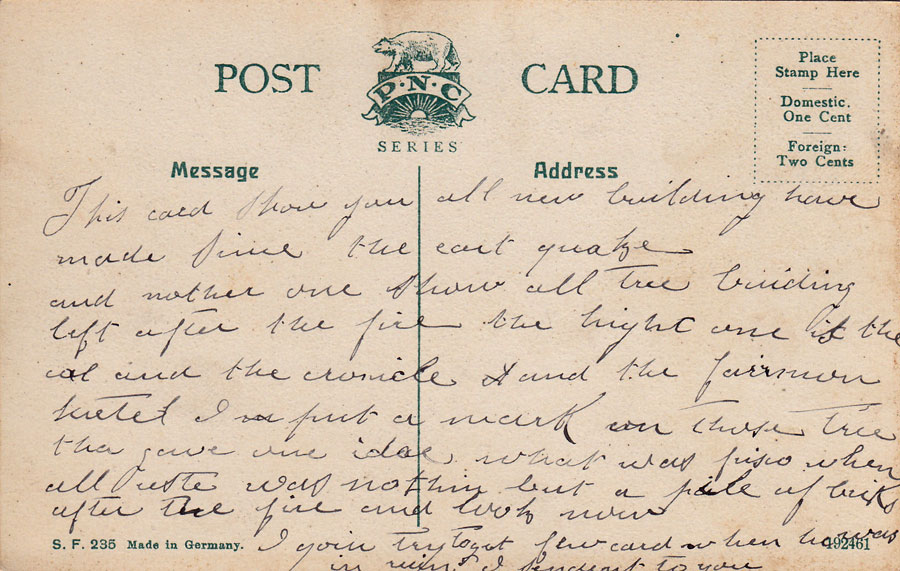 POST CARD
P·N·C
SERIES
Place
Stamp Here
Domestic.
One Cent
Foreign:
Two Cents
Message
Address
This card show you all new building have
made sinse the eart quake
and nother one show all tree buiding
left after the fire the hight one is the
cal and the cronicle and the fairmon
hotel I put a mark on those tree
tha gave one idae what was frisco when
all reste was nothin but a pile of briks
after the fire and look now
S. F. 235 Made in Germany.
192461
I goin try to get few card when he was
in ruin I send ent to you